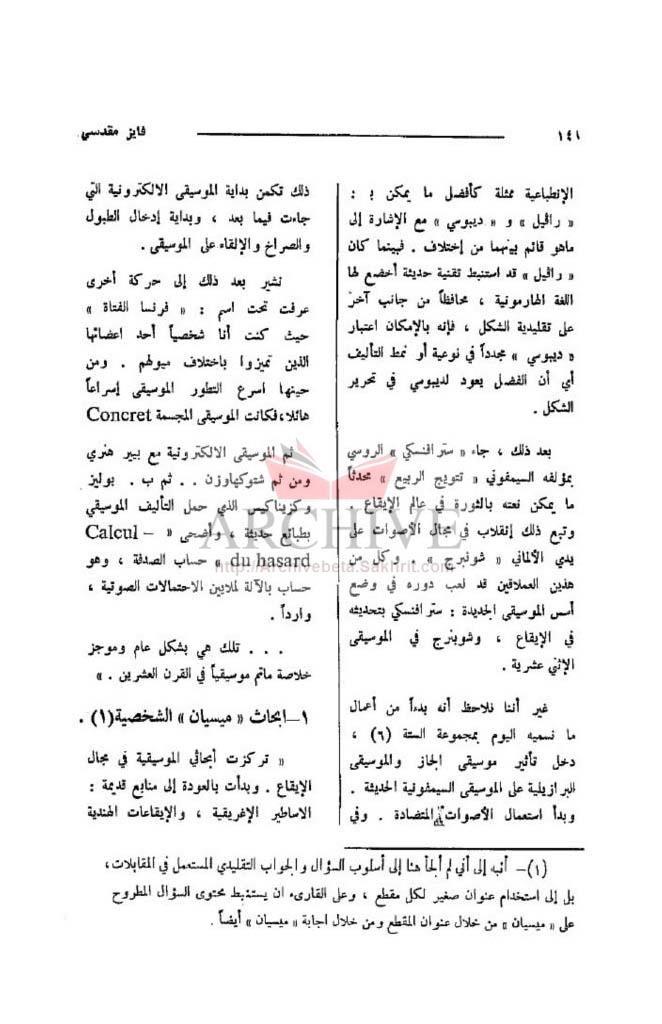 ١٤١
فايز مقدسي
الإنطباعية ممثلة كأفضل ما يمكن بـ :
« رافيل » و « ديبوسي » مع الإشارة إلى
ماهو قائم بينهما من إختلاف . فبينما كان
« رافيل » قد استنبط تقنية حديثة أخضع لها
اللغة الهارمونية ، محافظاً من جانب آخر
على تقليدية الشكل ، فإنه بالإمكان اعتبار
« ديبوسي » مجدداً في نوعية أو نمط التأليف
أي أن الفضل يعود لديبوسي في تحرير
الشكل .
بعد ذلك ، جاء « سترافنسكي » الروسي
بمؤلفه السيمفوني « تتويج الربيع » محدثاً
ما يمكن نعته بالثورة في عالم الإيقاع .
وتبع ذلك إنقلاب في مجال الأصوات على
يدي الألماني « شونبرج » . وكل من
هذين العملاقين قد لعب دوره في وضع
أسس الموسيقى الجديدة : سترافنسكي بتحديثه
في الإيقاع ، وشوبنرج في الموسيقى
الإثني عشرية .
غير أننا نلاحظ أنه بدءاً من أعمال
ما نسميه اليوم بمجموعة الستة (٦) ،
دخل تأثير موسيقى الجاز والموسيقى
البرازيلية على الموسيقى السيمفونية الحديثة .
وبدأ استعمال الأصوات المتضادة . وفي
ذلك تكمن بداية الموسيقى الالكترونية التي
جاءت فيما بعد ، وبداية إدخال الطبول
والصراخ والإلقاء على الموسيقى .
نشير بعد ذلك إلى حركة أخرى
عرفت تحت اسم : « فرنسا الفتاة »
حيث كنت أنا شخصياً أحد اعضائها
الذين تميزوا باختلاف ميولهم . ومن
حينها اسرع التطور الموسيقى إسراعاً
هائلا،فكانت الموسيقى المجسمة Concret
ثم الموسيقى الالكترونية مع بيير هنري
ومن ثم شتوكهاوزن . . ثم ب . بوليز
وكزيناكيس الذي حمل التأليف الموسيقي
بطبائع حديثة ، وأضحى « – Calcul
du hasard » حساب الصدفة ، وهو
حساب بالآلة لملايين الاحتمالات الصوتية ،
وارداً .
. . . تلك هي بشكل عام وموجز
خلاصة ماتم موسيقياً في القرن العشرين . »
١–ابحاث « ميسيان » الشخصية(١) .
« تركزت أبحاثي الموسيقية في مجال
الإيقاع . وبدأت بالعودة إلى منابع قديمة :
الاساطير الإغريقية ، والإيقاعات الهندية
(١)– أنبه إلى أني لم ألجأ هنا إلى أسلوب السؤال والجواب التقليدي المستعمل في المقابلات ،
بل إلى استخدام عنوان صغير لكل مقطع ، وعلى القارىء ان يستنبط محتوى السؤال المطروح
على « ميسيان » من خلال عنوان المقطع ومن خلال اجابة « ميسيان » أيضاً .
ARCHIVE
http://Archivebeta.Sakhrit.com